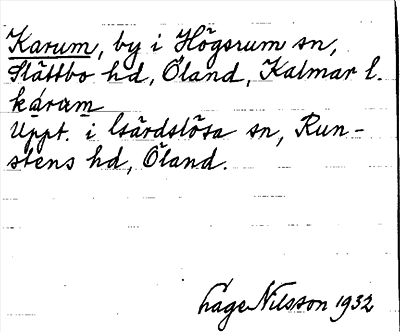 Karum, by i Högsrum sn,
Slättbo hd, Öland, Kalmar l.
káram
Uppt. i Gärdslösa sn, Run-
stens hd, Öland.
Åage Nilsson 1932